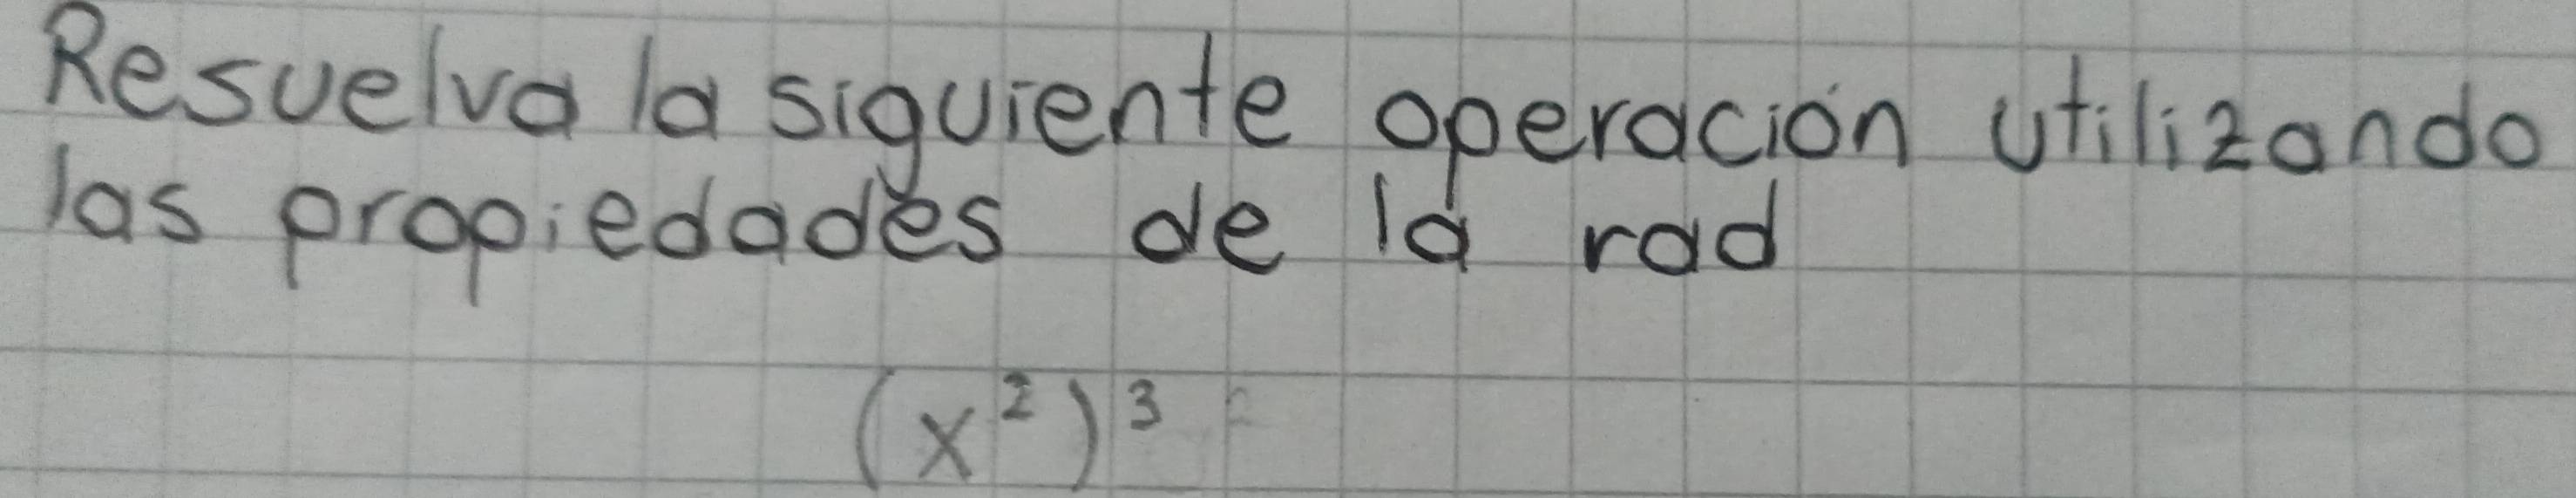 Resuelva la siguiente operación utilizando
las propiedades de la rad
(x²)³